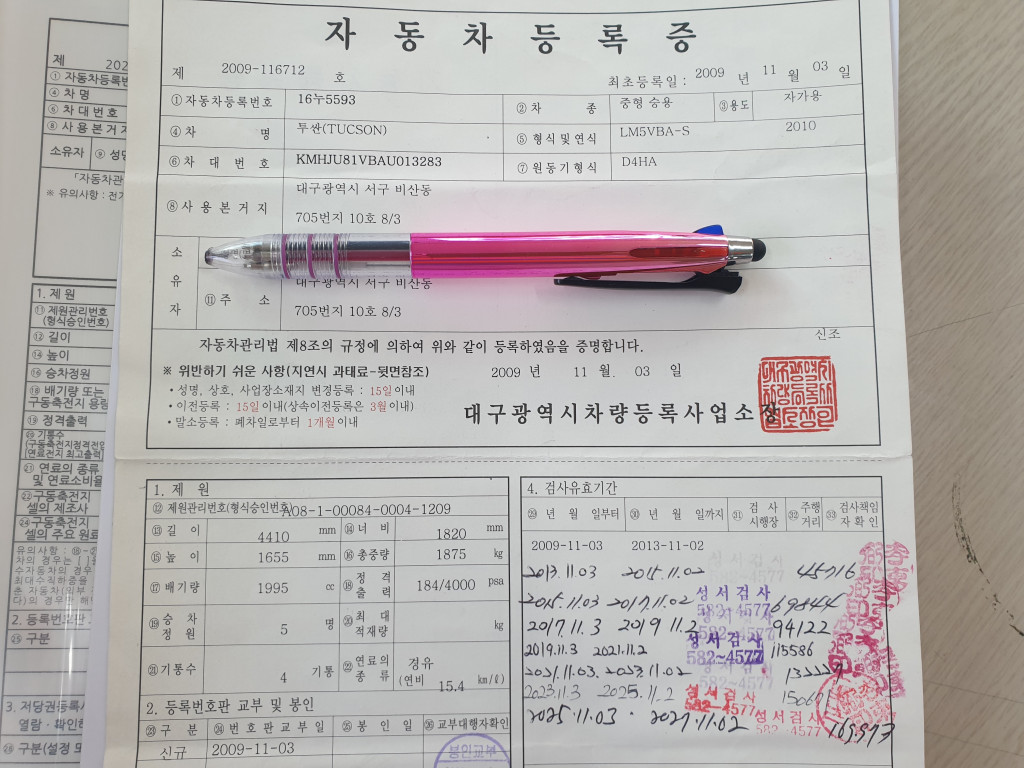 자동차등록증
제 2009-116712 호
최초등록일 : 2009 년 11 월 03 일
①자동차등록번호 16누5593 ②차 종 중형 승용 ③용도 자가용
④차 명 투싼(TUCSON) ⑤형식 및 연식 LM5VBA-S 2010
⑥차 대 번 호 KMHJU81VBAU013283 ⑦원동기형식 D4HA
⑧사 용 본 거 지 대구광역시 서구 비산동
705번지 10호 8/3
소유자
⑪주 소 대구광역시 서구 비산동
705번지 10호 8/3
신조
자동차관리법 제8조의 규정에 의하여 위와 같이 등록하였음을 증명합니다.
※ 위반하기 쉬운 사항(지연시 과태료-뒷면참조)
2009 년 11 월. 03 일
• 성명, 상호, 사업장소재지 변경등록 : 15일이내
• 이전등록 : 15일이내(상속이전등록은 3월이내)
• 말소등록 : 폐차일로부터 1개월이내
대구광역시차량등록사업소장
1. 제 원
㉒ 제원관리번호(형식승인번호) A08-1-00084-0004-1209
⑬길 이 4410 mm ⑭너 비 1820 mm
⑮높 이 1655 mm ⑯총중량 1875 kg
⑰배기량 1995 cc ⑱정격출력 184/4000 psa
⑲승차정원 5 명 ⑳최대적재량 kg
㉑기통수 4 기통 ㉒연료의종류 경유
(연비 15.4 km/ℓ)
2. 등록번호판 교부 및 봉인
㉓구 분 ㉔번호판교부일 ㉕봉 인 일 ㉖교부대행자확인
신규 2009-11-03
봉인교부
4. 검사유효기간
㉙ 년 월 일부터 ㉚ 년 월 일까지 ㉛검 사 시행장 ㉜주행거리 ㉝검사책임자확인
2009-11-03 2013-11-02
2013.11.03 2015.11.02 45716
2015.11.03 2017.11.02 69844
2017.11.3 2019 11.2 94122
2019.11.3 2021.11.2 115586
2021.11.03. 2023.11.02
2023.11.3 2025.11.2
2025.11.03 2027.11.02 169,973
성서검사
582-4577
성서검사
582~4577
성서검사
582-4577
성서검사
582-4577
제 202
① 자동차등록번
④ 차 명
⑥ 차 대 번 호
⑧ 사 용 본 거 지
소유자 ⑨ 성명
「자동차관
※ 유의사항 : 전기
1. 제 원
⑪ 제원관리번호
(형식승인번호)
⑫ 길이
⑭ 높이
⑯ 승차정원
⑱ 배기량 또는
구동축전지 용량
⑲ 정격출력
⑳ 기통수
(구동축전지정격전압
㉑ 연료의 종류
및 연료소비율
㉒ 구동축전지
셀의 제조사
㉔ 구동축전지
셀의 주요 원료
2. 등록번호판
㉕ 구분
3. 저당권등록사
열람·확인하
㉘ 구분(설정 또